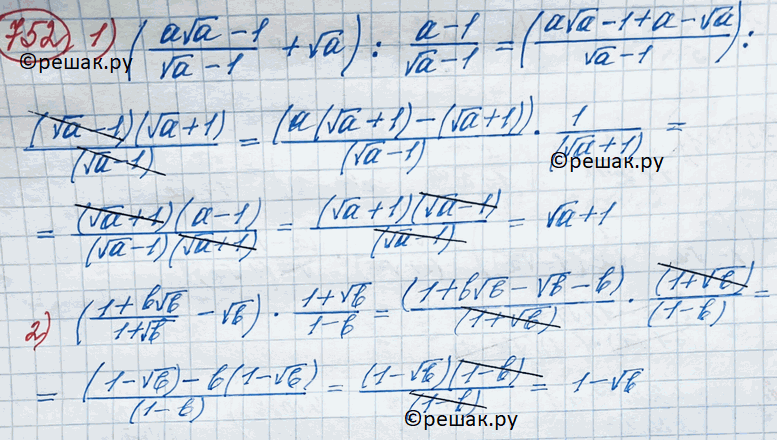 752. 1) ( (a√a − 1)/(√a − 1) + √a ) : (a − 1)/(√a − 1) = ( (a√a − 1 + a − √a)/(√a − 1) ) :
©решак.ру
((√a − 1)(√a + 1))/((√a − 1)) = ((a(√a + 1) − (√a + 1))/((√a − 1)) · 1/((√a + 1)) =
©решак.ру
= ((√a + 1)(a − 1))/((√a − 1)(√a + 1)) = ((√a + 1)(√a − 1))/((√a − 1)) = √a + 1
2) ( (1 + b√b)/(1 + √b) − √b ) · (1 + √b)/(1 − b) = ((1 + b√b − √b − b))/((1 + √b)) · ((1 + √b))/((1 − b)) =
= ((1 − √b) − b(1 − √b))/((1 − b)) = ((1 − √b)(1 − b))/((1 − b)) = 1 − √b
©решак.ру